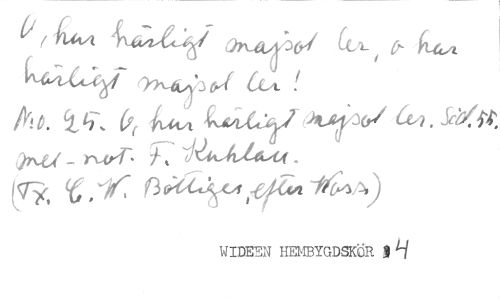 O, hur härligt majsol ler, o hur
härligt majsol ler!
N:o. 25. O, hur härligt majsol ler. Sid. 55.
mel-not. F. Kuhlau.
(Tx. C. W. Böttiger, efter Voss)
WIDEEN HEMBYGDSKÖR 4